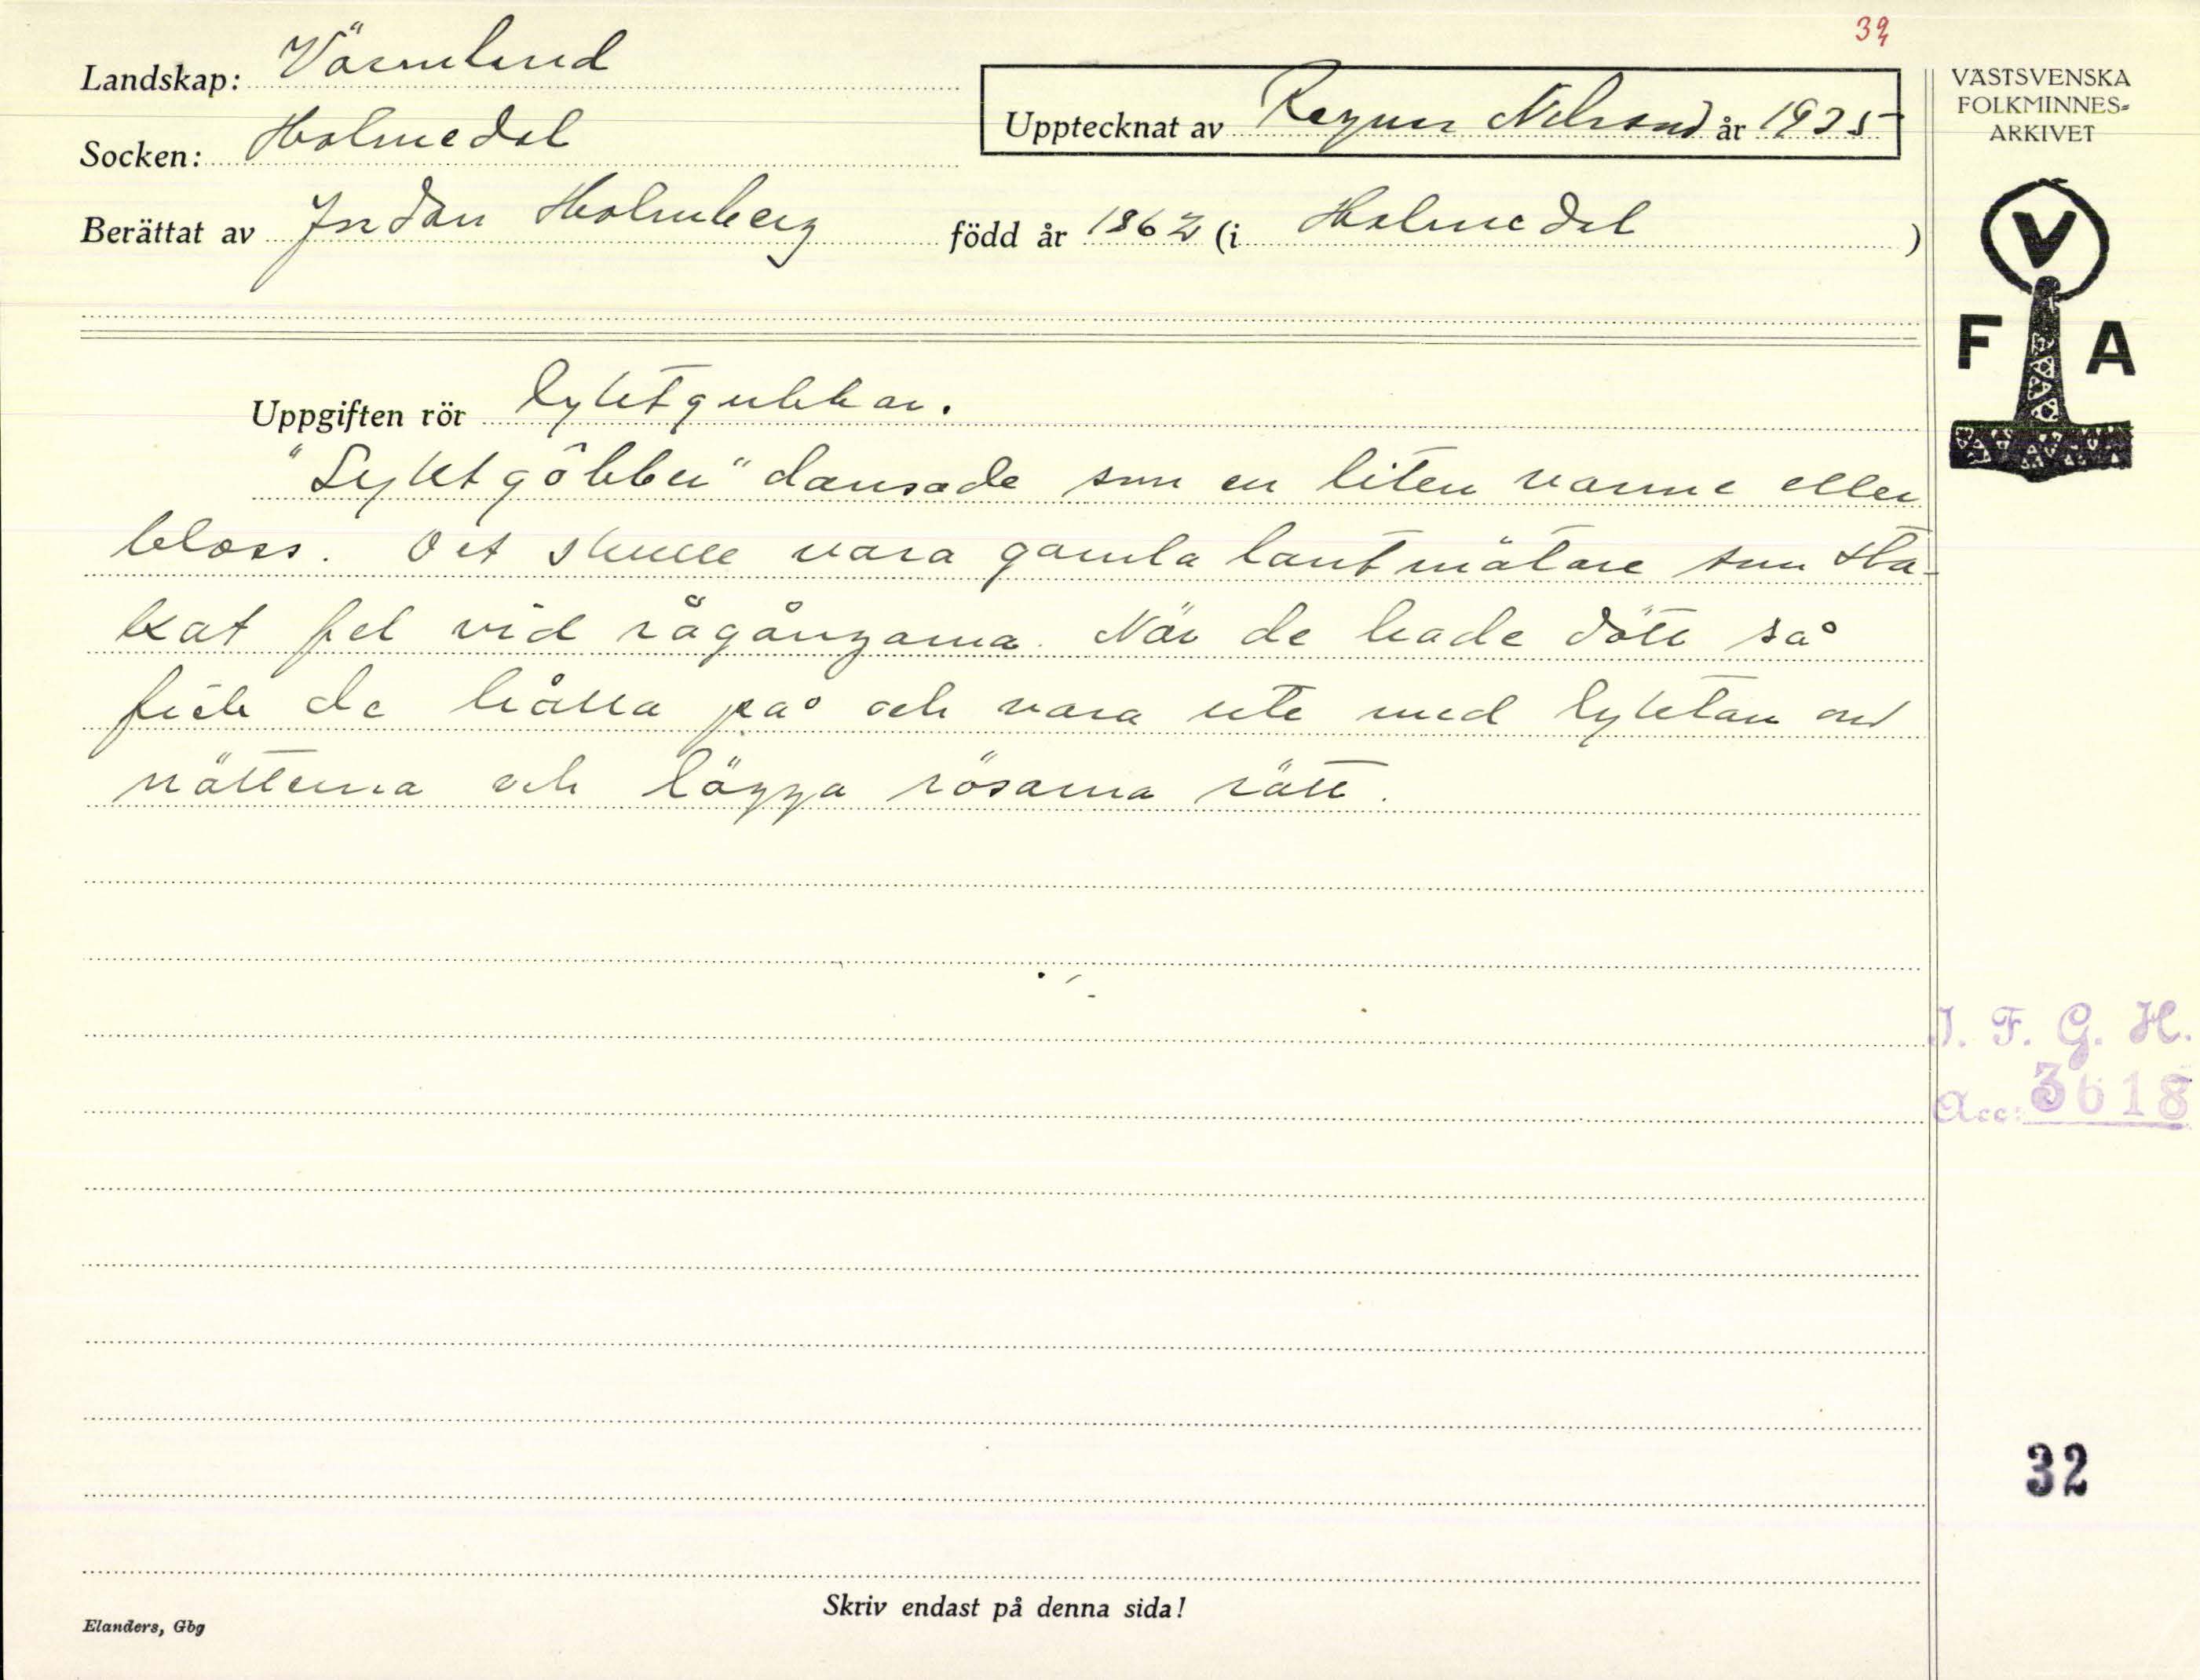 39
Landskap: Värmland
Upptecknat av Ragnar Nilsson år 1935
Socken: Holmedal
Berättat av Jordan Holmberg född år 1862 (i Holmedal )
VÄSTSVENSKA
FOLKMINNES-
ARKIVET
V
F A
Uppgiften rör lyktgubbar.
"Lyktgôbber" dansade som en liten warme eller
bloss. Det skulle vara gamla lantmätare som sta-
kat fel vid rågångarna. När de hade dött så
fick de hålla på och vara ute med lyktan om
nätterna och lägga rösarna rätt.
I. F. G. H.
Acc: 3618
32
Skriv endast på denna sida!
Elanders, Gbg